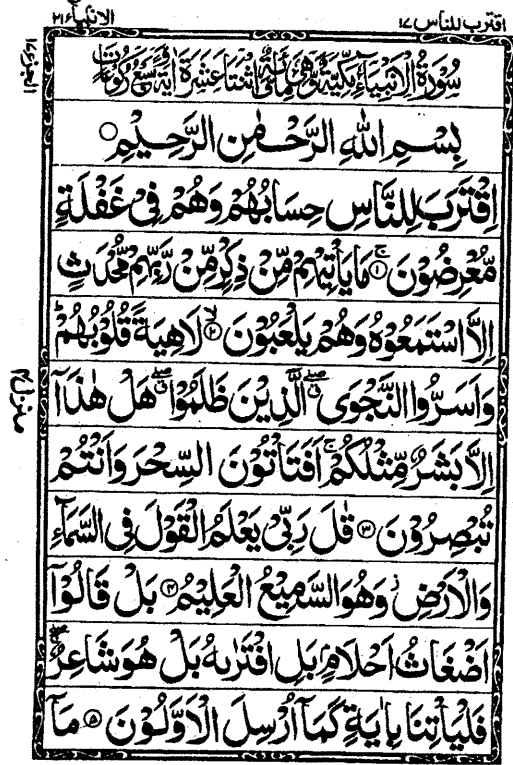 اقترب للناس ١٧
الانبیاء ٢١
سُوْرَةُ الْاَنْبِيَآءِ مَكِّيَّةٌ وَّهِيَ مِائَةٌ وَّاثْنَتَا عَشْرَةَ اٰيَةً وَّسَبْعُ رُكُوْعَاتٍ
بِسْمِ اللّٰهِ الرَّحْمٰنِ الرَّحِيْمِ ○
اِقْتَرَبَ لِلنَّاسِ حِسَابُهُمْ وَهُمْ فِيْ غَفْلَةٍ
مُّعْرِضُوْنَ ۚ﴿١﴾ مَا يَاْتِيْهِمْ مِّنْ ذِكْرٍ مِّنْ رَّبِّهِمْ مُّحْدَثٍ
اِلَّا اسْتَمَعُوْهُ وَهُمْ يَلْعَبُوْنَ ۙ﴿٢﴾ لَاهِيَةً قُلُوْبُهُمْ ؕ
وَاَسَرُّوا النَّجْوَى ۖۗ الَّذِيْنَ ظَلَمُوْا ۖۗ هَلْ هٰذَاۤ
اِلَّا بَشَرٌ مِّثْلُكُمْ ۚ اَفَتَاْتُوْنَ السِّحْرَ وَاَنْتُمْ
تُبْصِرُوْنَ ﴿٣﴾ قٰلَ رَبِّيْ يَعْلَمُ الْقَوْلَ فِي السَّمَآءِ
وَالْاَرْضِ ز وَهُوَ السَّمِيْعُ الْعَلِيْمُ ﴿٤﴾ بَلْ قَالُوْۤا
اَضْغَاثُ اَحْلَامٍۭ بَلِ افْتَرٰىهُ بَلْ هُوَ شَاعِرٌ ۖۚ
فَلْيَاْتِنَا بِاٰيَةٍ كَمَاۤ اُرْسِلَ الْاَوَّلُوْنَ ﴿٥﴾ مَاۤ
منزل ٤